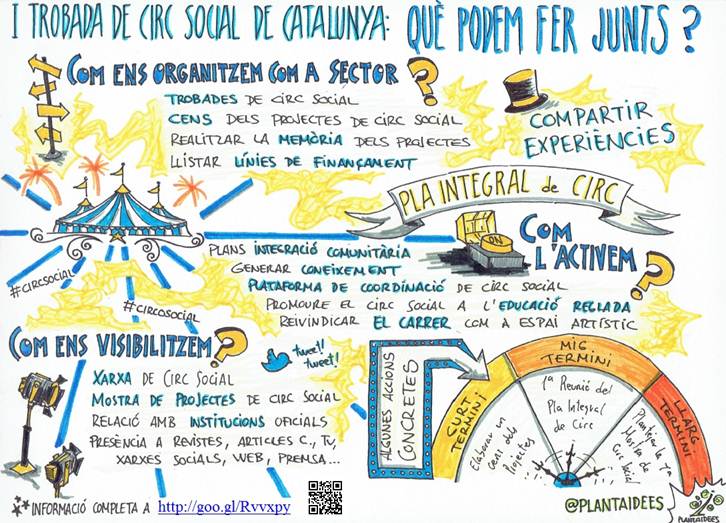 I TROBADA DE CIRC SOCIAL DE CATALUNYA: QUÈ PODEM FER JUNTS?
COM ENS ORGANITZEM COM A SECTOR?
TROBADES DE CIRC SOCIAL
CENS DELS PROJECTES DE CIRC SOCIAL
REALITZAR LA MEMÒRIA DELS PROJECTES
LLISTAR LÍNIES DE FINANÇAMENT
COMPARTIR
EXPERIÈNCIES
PLA INTEGRAL de CIRC
ON
COM
L'ACTIVEM?
PLANS INTEGRACIÓ COMUNITÀRIA
GENERAR CONEIXEMENT
PLATAFORMA DE COORDINACIÓ DE CIRC SOCIAL
PROMOURE EL CIRC SOCIAL A L'EDUCACIÓ REGLADA
REIVINDICAR EL CARRER COM A ESPAI ARTÍSTIC
#CIRCSOCIAL
#CIRCOSOCIAL
COM ENS VISIBILITZEM?
tweet!
tweet!
XARXA DE CIRC SOCIAL
MOSTRA DE PROJECTES DE CIRC SOCIAL
RELACIÓ AMB INSTITUCIONS OFICIALS
PRESÈNCIA A REVISTES, ARTICLES C., TV,
XARXES SOCIALS, WEB, PREMSA...
ALGUNES ACCIONS
CONCRETES
CURT
TERMINI
Elaborar un
Cens dels
Projectes
MIG
TERMINI
1ª Reunió del
Pla Integral
de Circ
LLARG
TERMINI
Plantejar la 1ª
Mostra de
Circ Social
@PLANTAIDEES
PLANTAIDEES
** INFORMACIÓ COMPLETA A http://goo.gl/Rvvxpy